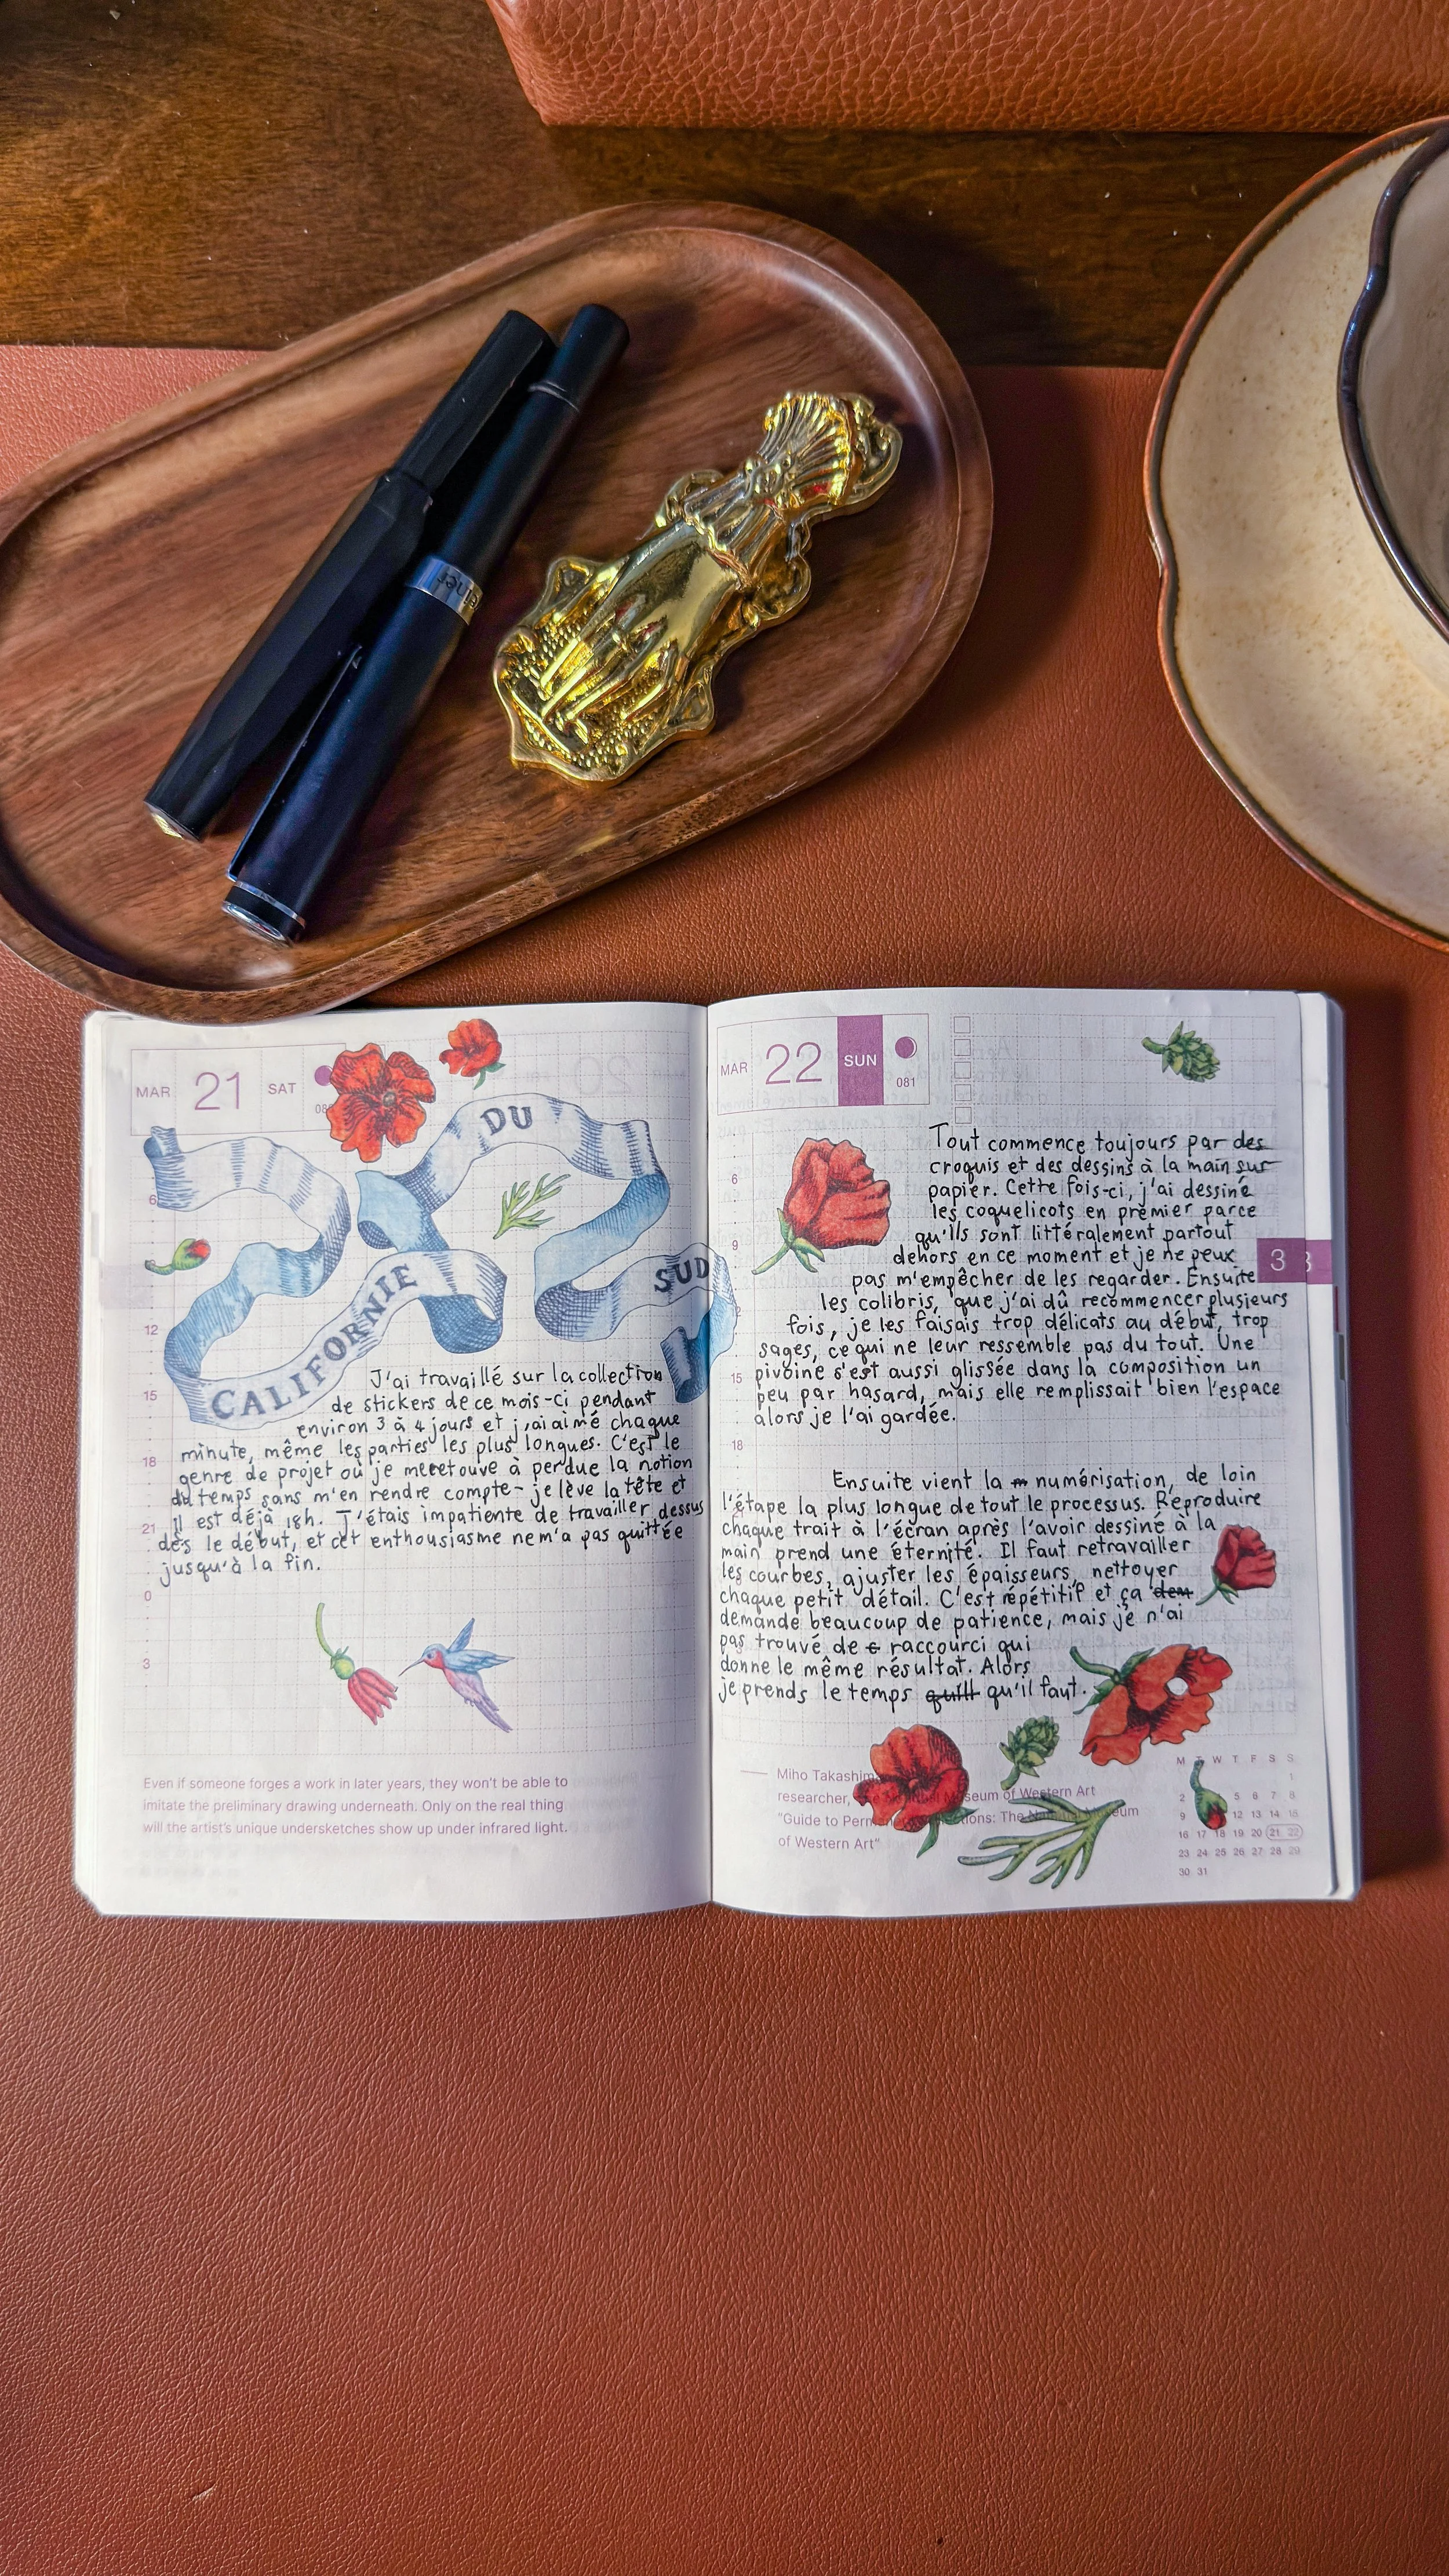 MAR 21 SAT
DU
CALIFORNIE
SUD
6
12
15
18
21
0
3
J'ai travaillé sur la collection
de stickers de ce mois-ci pendant
environ 3 à 4 jours et j'ai aimé chaque
minute, même les parties les plus longues. C'est le
genre de projet où je me retouve à perdue la notion
du temps sans m'en rendre compte - je lève la tête et
il est déjà 18h. J'étais impatiente de travailler dessus
dès le début, et cet enthousiasme ne m'a pas quittée
jusqu'à la fin.
Even if someone forges a work in later years, they won't be able to
imitate the preliminary drawing underneath. Only on the real thing
will the artist's unique undersketches show up under infrared light.
MAR 22 SUN
081
3
6
9
15
18
Tout commence toujours par des
croquis et des dessins à la main sur
papier. Cette fois-ci, j'ai dessiné
les coquelicots en premier parce
qu'ils sont littéralement partout
dehors en ce moment et je ne peux
pas m'empêcher de les regarder. Ensuite
les colibris, que j'ai dû recommencer plusieurs
fois, je les faisais trop délicats au début, trop
sages, ce qui ne leur ressemble pas du tout. Une
pivoine s'est aussi glissée dans la composition un
peu par hasard, mais elle remplissait bien l'espace
alors je l'ai gardée.
Ensuite vient la numérisation, de loin
l'étape la plus longue de tout le processus. Reproduire
chaque trait à l'écran après l'avoir dessiné à la
main prend une éternité. Il faut retravailler
les courbes, ajuster les épaisseurs, nettoyer
chaque petit détail. C'est répétitif et ça dem
demande beaucoup de patience, mais je n'ai
pas trouvé de c raccourci qui
donne le même résultat. Alors
je prends le temps quill qu'il faut.
Miho Takashim
researcher, Museum of Western Art
"Guide to Perm tions: The Na Museum
of Western Art"
M W T F S S
1
2 5 6 7 8
9 12 13 14 15
16 17 18 19 20 21 22
23 24 25 26 27 28 29
30 31